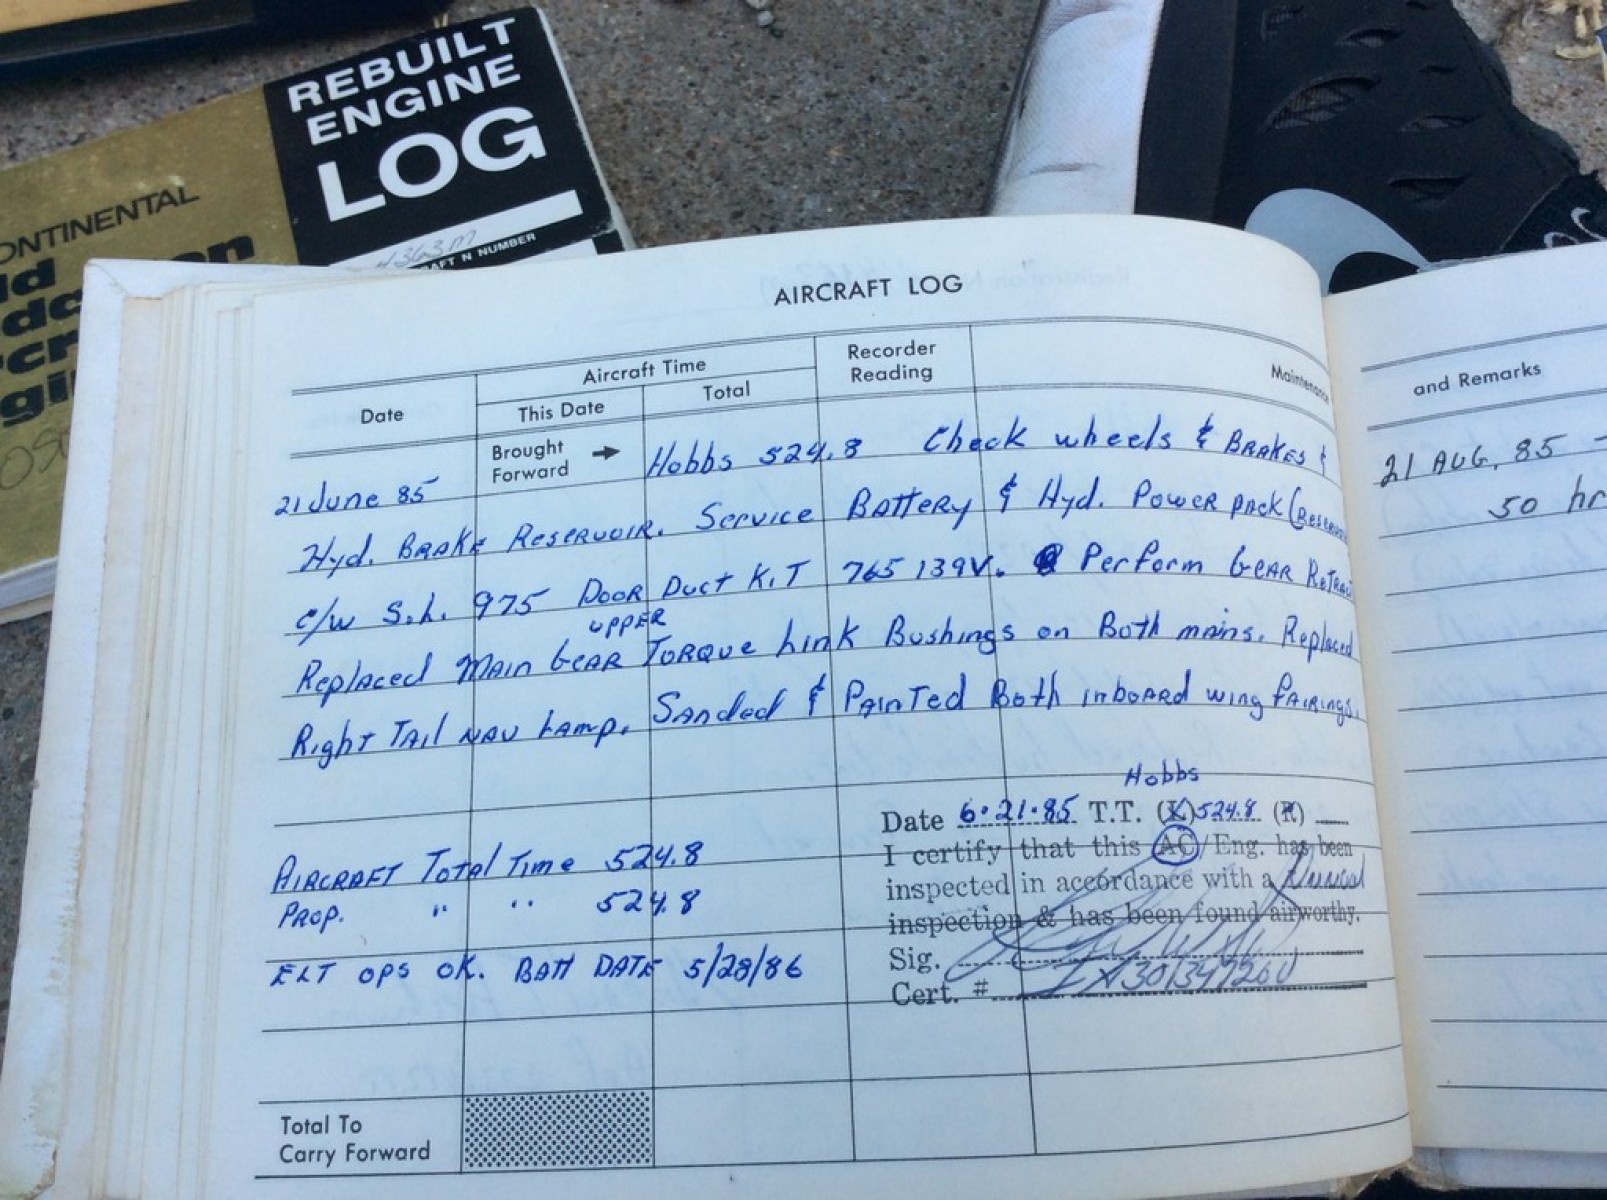 REBUILT
ENGINE
LOG
N NUMBER
4363M
AIRCRAFT LOG
Date
Aircraft Time
This Date
Total
Recorder
Reading
Maintenance
and Remarks
Brought
Forward
21 June 85
Hobbs 524.8 Check wheels & BRAKES &
Hyd. BRAKE RESERVOIR. Service BATTERY & Hyd. POWER PACK (
c/w S.L. 975 DOOR DUCT KIT 765 139V. Perform GEAR
UPPER
Replaced MAIN GEAR TORQUE Link Bushings on Both mains. Replaced
Right TAIL NAV LAMP. SANDED & PAINTED Both inboard wing FAIRINGS.
Hobbs
Date 6.21.85 T.T. (X) 524.8 (R)
I certify that this AC/Eng. has been
inspected in accordance with a Annual
inspection & has been found airworthy.
Sig.
Cert. #
AIRCRAFT TOTAL Time 524.8
PROP. " " 524.8
ELT OPS OK. BATT DATE 5/28/86
Total To
Carry Forward
21 AUG. 85 -
50 hr